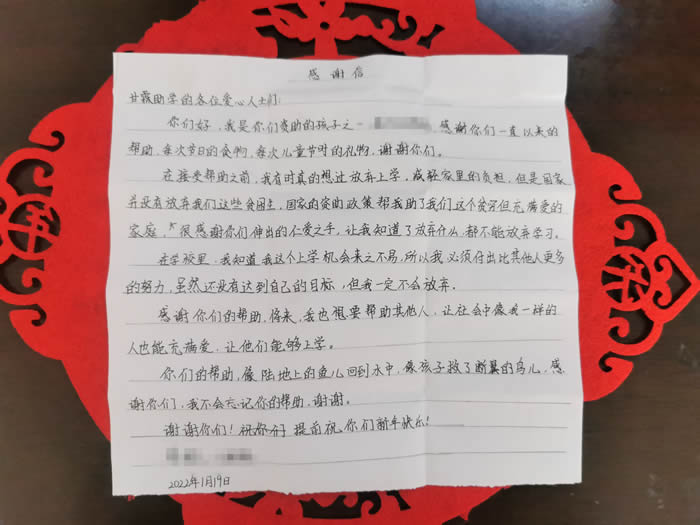 感谢信
甘霖助学的各位爱心人士们:
你们好,我是你们资助的孩子之一 感谢你们一直以来的
帮助,每次节日的食物,每次儿童节时的礼物,谢谢你们。
在接受帮助之前,我有时真的想过放弃上学,减轻家里的负担,但是国家
并没有放弃我们这些贫困生,国家的资助政策帮我助了我们这个贫穷但充满爱的
家庭,很感谢你们伸出的仁爱之手,让我知道了放弃什么,都不能放弃学习。
在学校里,我知道我这个上学机会来之不易,所以我必须付出比其他人更多
的努力,虽然还没有达到自己的目标,但我一定不会放弃.
感谢你们的帮助,将来,我也想要帮助其他人,让社会中像我一样的
人也能充满爱,让他们能够上学。
你们的帮助,像陆地上的鱼儿回到水中,像孩子救了断翼的鸟儿,感
谢你们,我不会忘记你的帮助,谢谢。
谢谢你们!祝你们 提前祝你们新年快乐!
2022年1月19日